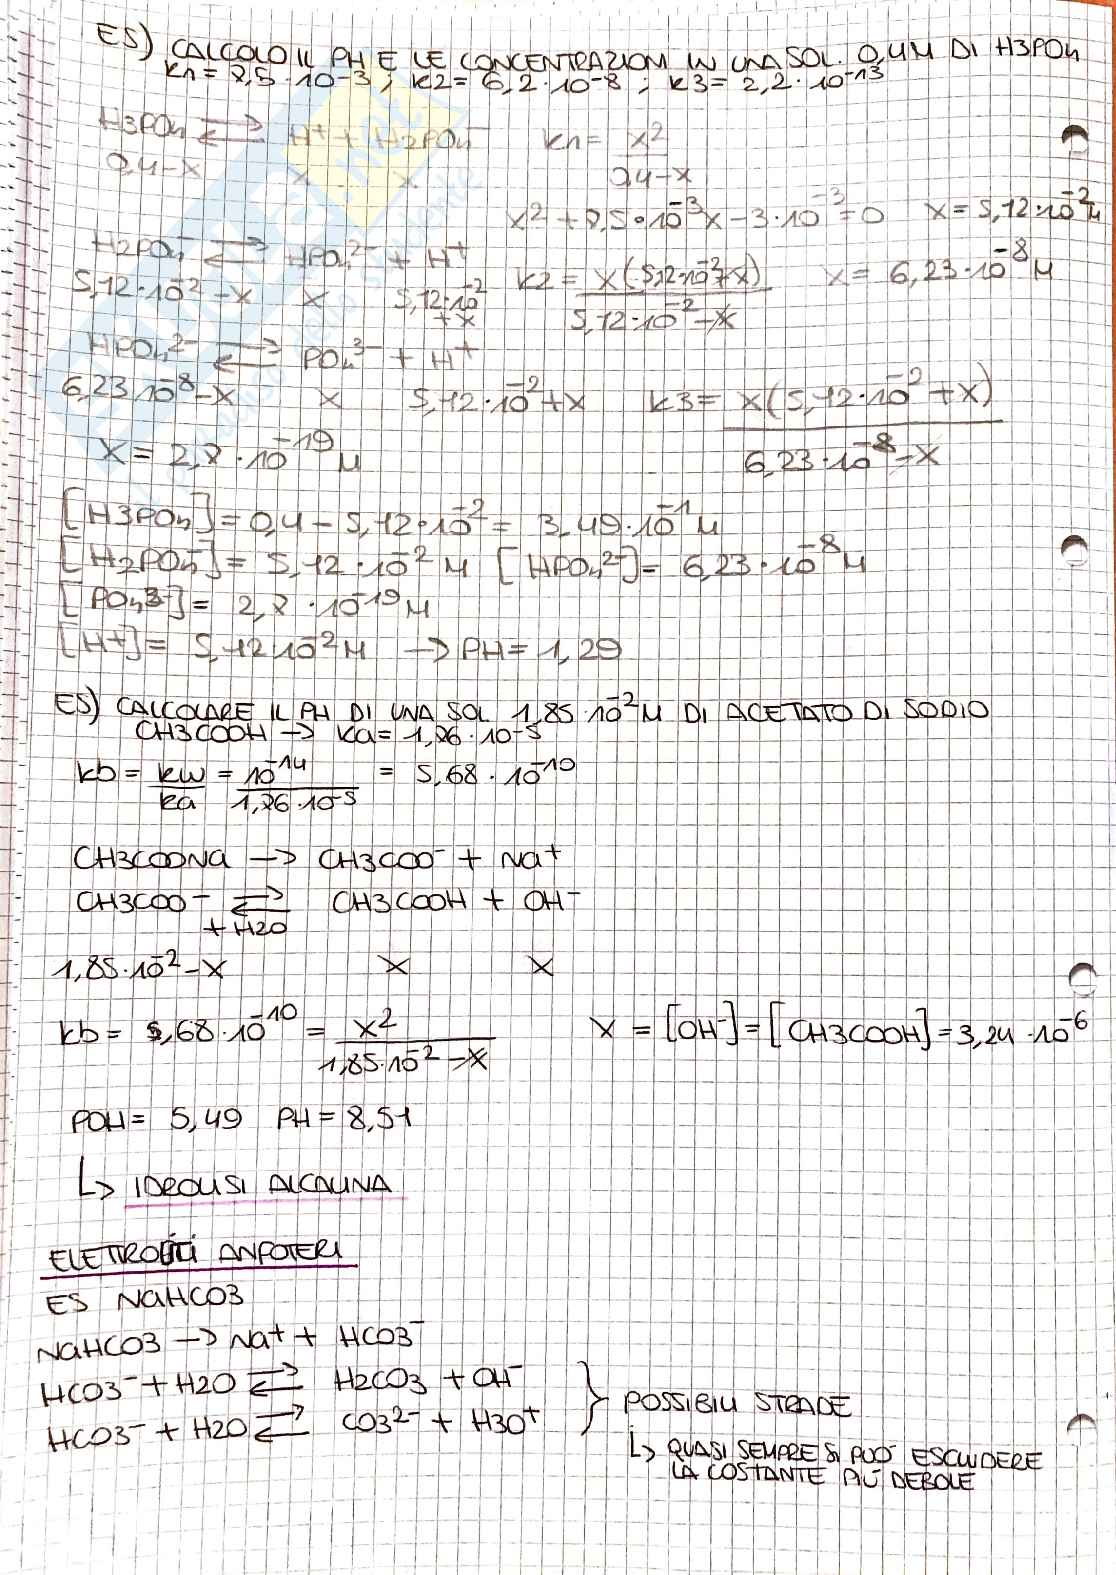 ES) CALCOLO IL PH E LE CONCENTRAZIONI IN UNA SOL. 0,4M DI H3PO4
K1 = 7,5·10⁻³ ; K2 = 6,2·10⁻⁸ ; K3 = 2,2·10⁻¹³
H3PO4 ⇌ H⁺ + H2PO4⁻ K1 = x²/(0,4-x)
0,4-x x x
x² + 7,5·10⁻³x - 3·10⁻³ = 0 x = 5,12·10⁻² M
H2PO4⁻ ⇌ HPO4²⁻ + H⁺
5,12·10⁻²-x x 5,12·10⁻²+x K2 = x(5,12·10⁻²+x)/(5,12·10⁻²-x) x = 6,23·10⁻⁸ M
HPO4²⁻ ⇌ PO4³⁻ + H⁺
6,23·10⁻⁸-x x 5,12·10⁻²+x K3 = x(5,12·10⁻²+x)/(6,23·10⁻⁸-x)
x = 2,7·10⁻¹⁹ M
[H3PO4] = 0,4 - 5,12·10⁻² = 3,49·10⁻¹ M
[H2PO4⁻] = 5,12·10⁻² M [HPO4²⁻] = 6,23·10⁻⁸ M
[PO4³⁻] = 2,7·10⁻¹⁹ M
[H⁺] = 5,12 10⁻² M → PH = 1,29
ES) CALCOLARE IL PH DI UNA SOL 1,85·10⁻² M DI ACETATO DI SODIO
CH3COOH → Ka = 1,76·10⁻⁵
Kb = Kw/Ka = 10⁻¹⁴/1,76·10⁻⁵ = 5,68·10⁻¹⁰
CH3COONa → CH3COO⁻ + Na⁺
CH3COO⁻ ⇌ CH3COOH + OH⁻
+ H2O
1,85·10⁻²-x x x
Kb = 5,68·10⁻¹⁰ = x²/(1,85·10⁻²-x) x = [OH⁻] = [CH3COOH] = 3,24·10⁻⁶
POH = 5,49 PH = 8,51
↳ IDROLISI ALCALINA
ELETTROLITI ANFOTERI
ES NaHCO3
NaHCO3 → Na⁺ + HCO3⁻
HCO3⁻ + H2O ⇌ H2CO3 + OH⁻
HCO3⁻ + H2O ⇌ CO3²⁻ + H3O⁺ } POSSIBILI STRADE
↳ QUASI SEMPRE SI PUÒ ESCLUDERE
LA COSTANTE PIÙ DEBOLE